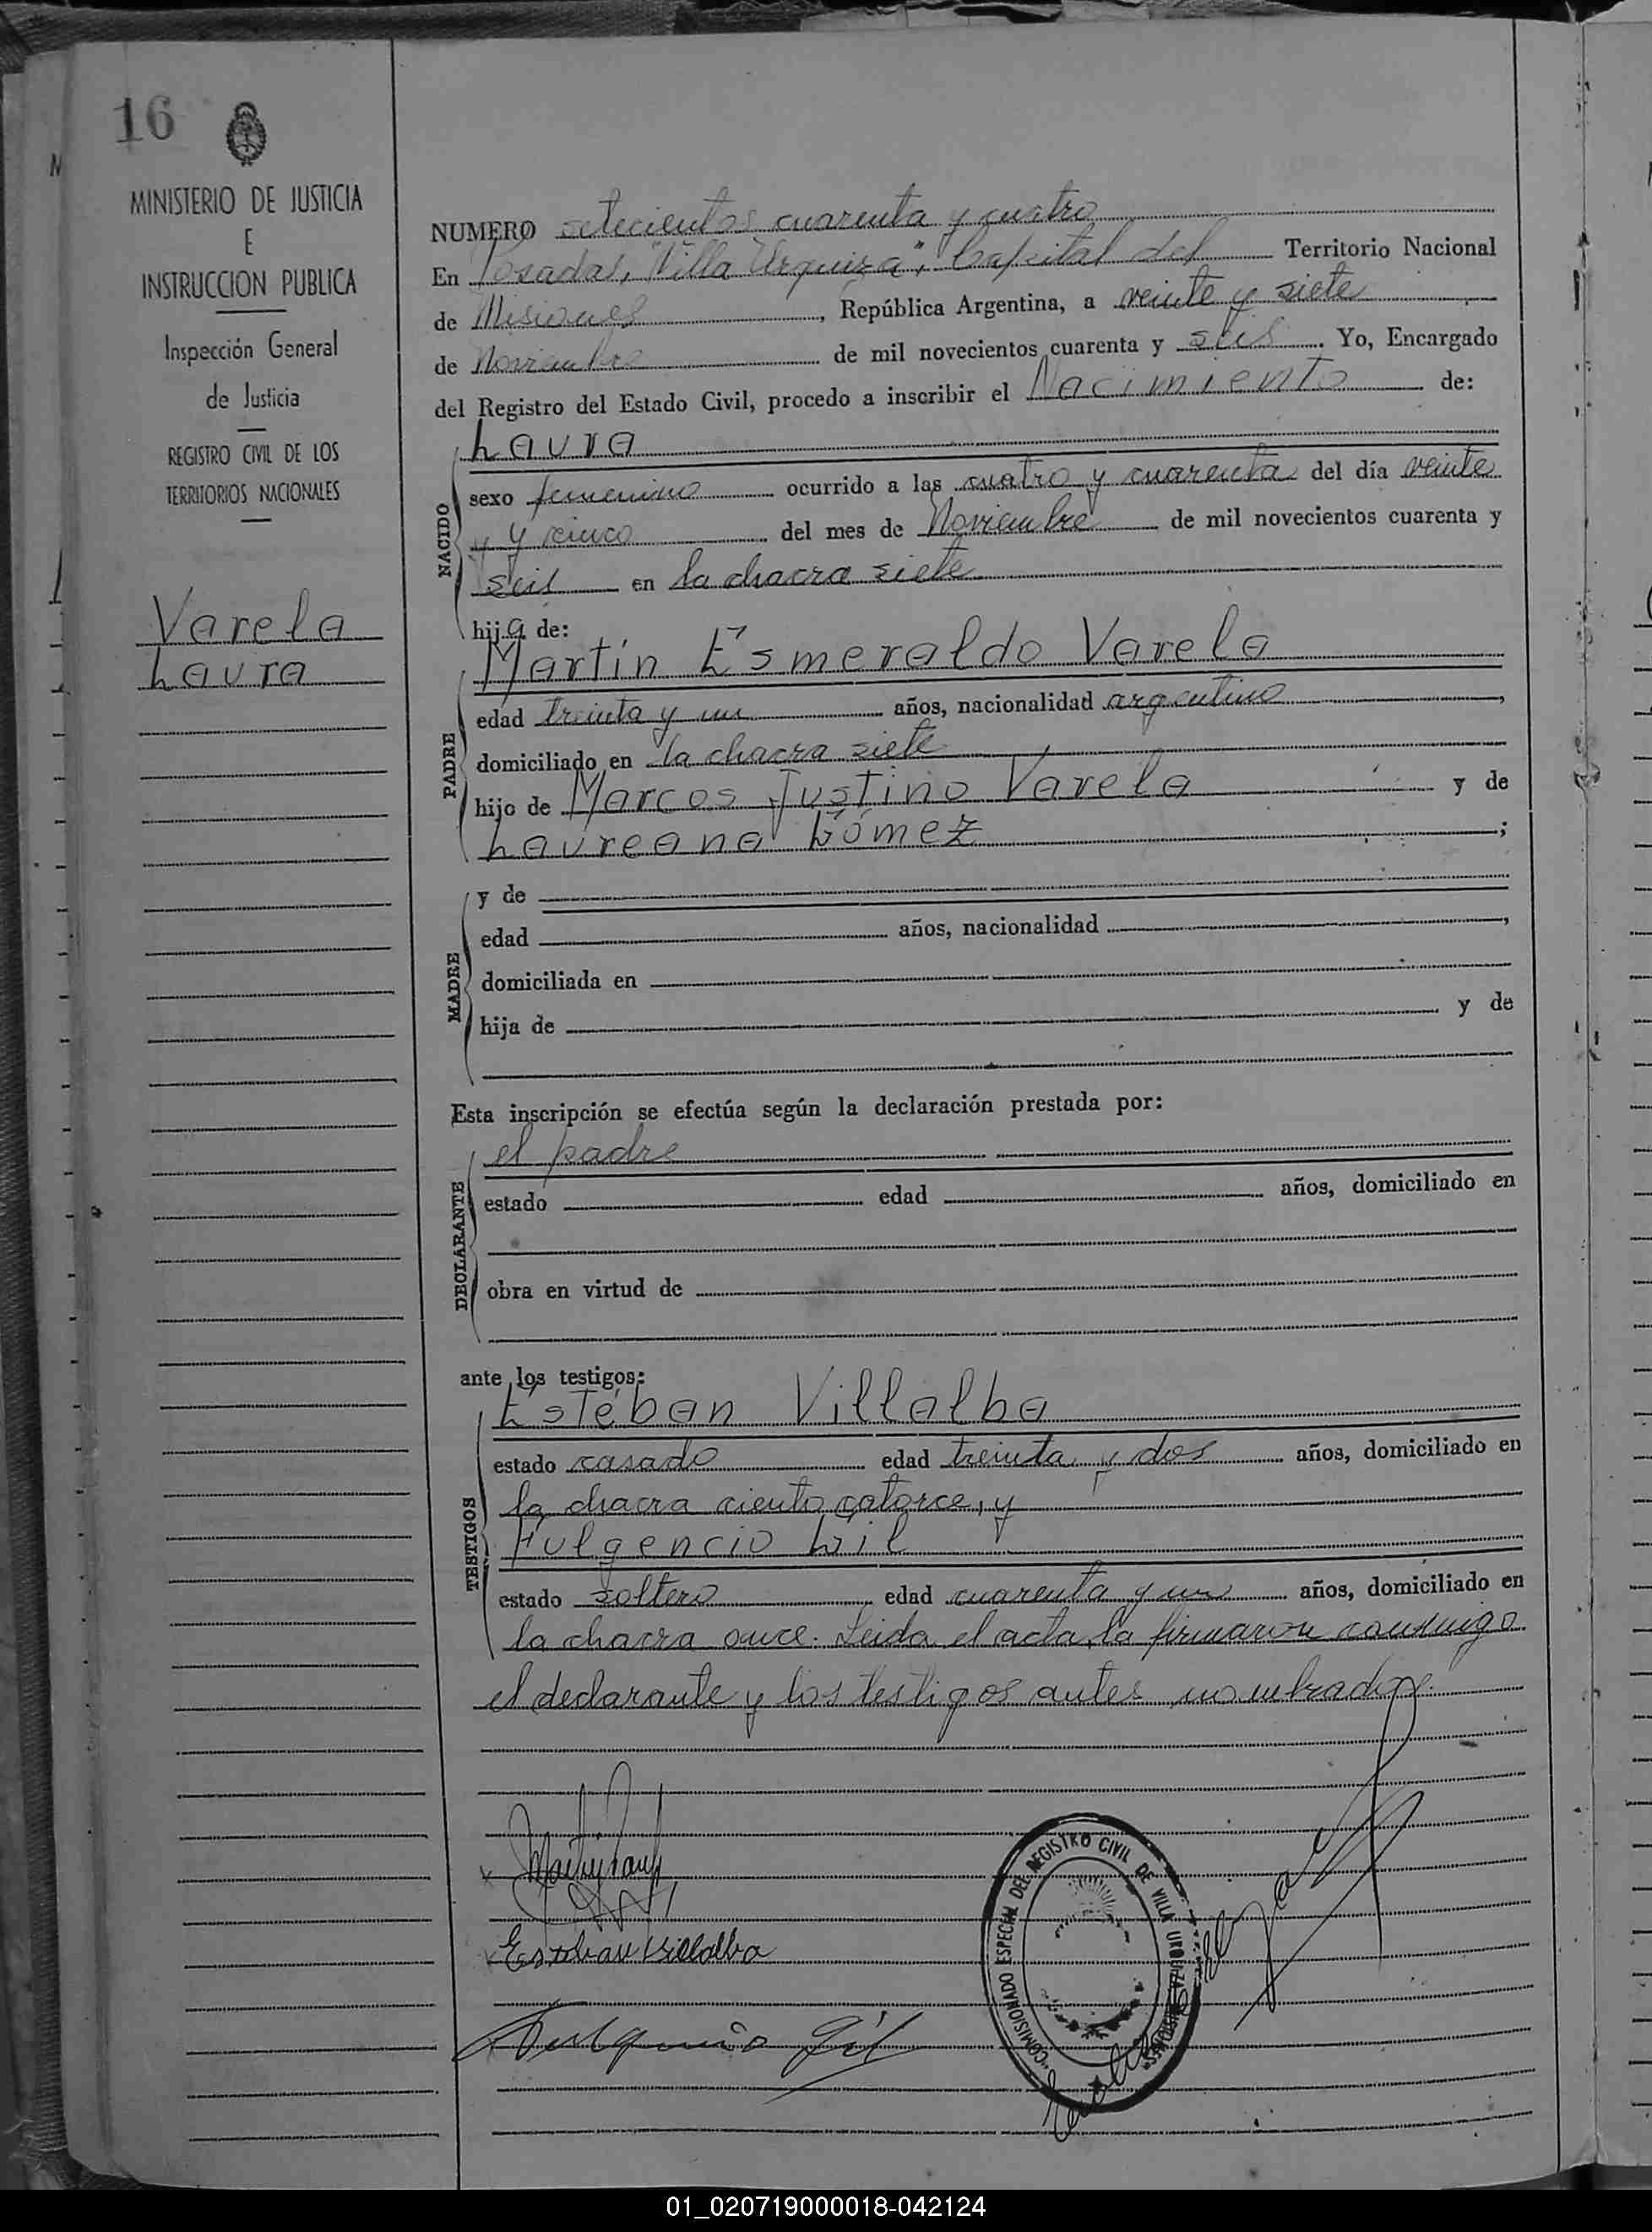 16
MINISTERIO DE JUSTICIA
E
INSTRUCCION PUBLICA
Inspección General
de Justicia
REGISTRO CIVIL DE LOS
TERRITORIOS NACIONALES
Varela
Laura
NUMERO setecientos cuarenta y cuatro
En Posadas, "Villa Urquiza", Capital del Territorio Nacional
de Misiones, República Argentina, a veinte y siete
de Noviembre de mil novecientos cuarenta y seis. Yo, Encargado
del Registro del Estado Civil, procedo a inscribir el Nacimiento de:
NACIDO
Laura
sexo femenino ocurrido a las cuatro y cuarenta del día veinte
y y cinco del mes de Noviembre de mil novecientos cuarenta y
seis en la chacra siete
hija de:
PADRE
Martín Esmeraldo Varela
edad treinta y un años, nacionalidad argentino,
domiciliado en la chacra siete
hijo de Marcos Justino Varela y de
Laureana Gómez;
MADRE
y de
edad años, nacionalidad,
domiciliada en
hija de y de
Esta inscripción se efectúa según la declaración prestada por:
DECLARANTE
el padre
estado edad años, domiciliado en
obra en virtud de
ante los testigos:
TESTIGOS
Estéban Villalba
estado casado edad treinta y dos años, domiciliado en
la chacra ciento catorce, y
Fulgencio Gil
estado soltero edad cuarenta y un años, domiciliado en
la chacra once. Leida el acta, la firmaron conmigo
el declarante y los testigos antes nombrados.
Esteban Villalba
Fulgencio Gil
"COMISIONADO ESPECIAL DEL REGISTRO CIVIL DE VILLA URQUIZA MISIONES"
01_020719000018-042124